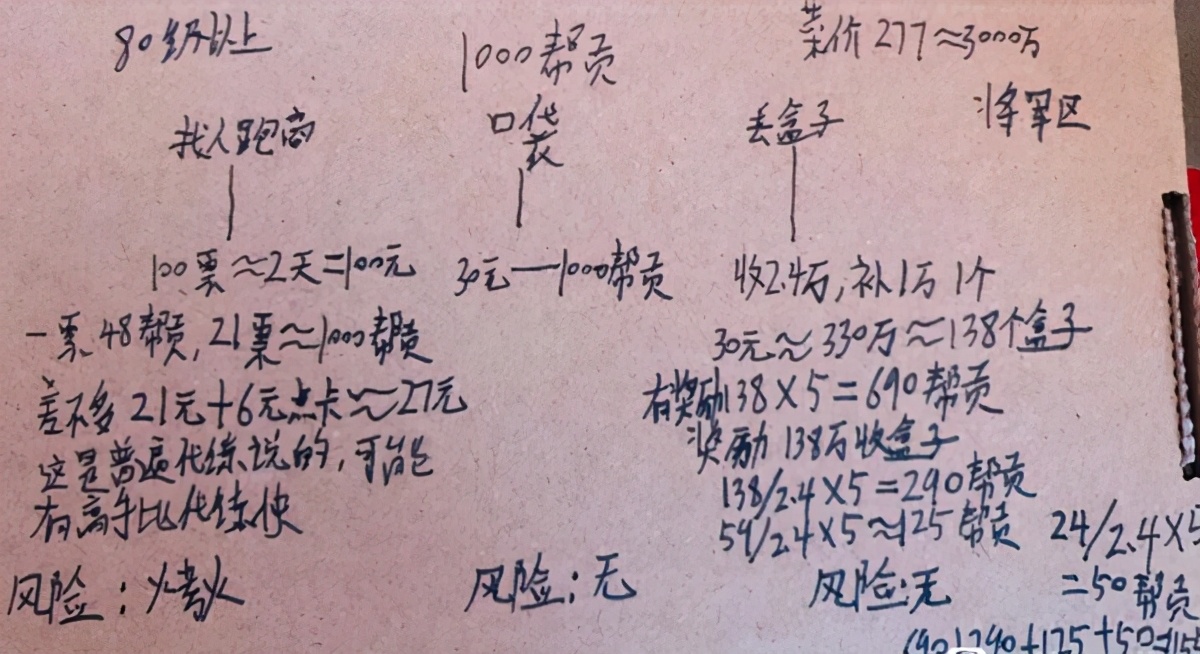 80级以上
1000帮贡
菜价277≈3000万
找人跑商
口袋
丢盒子
将军区
100票≈2天=100元
30元—1000帮贡
收2.4万,补1万1个
一票48帮贡,21票≈1000帮贡
30元≈330万≈138个盒子
差不多21元+6元点卡≈27元
有奖励138×5=690帮贡
这是普遍代练说的,可能
奖励138万收盒子
有高手比代练快
138/2.4×5=290帮贡
54/2.4×5≈125帮贡
24/2.4×5
=50帮贡
风险:烤火
风险:无
风险:无
290+125+50